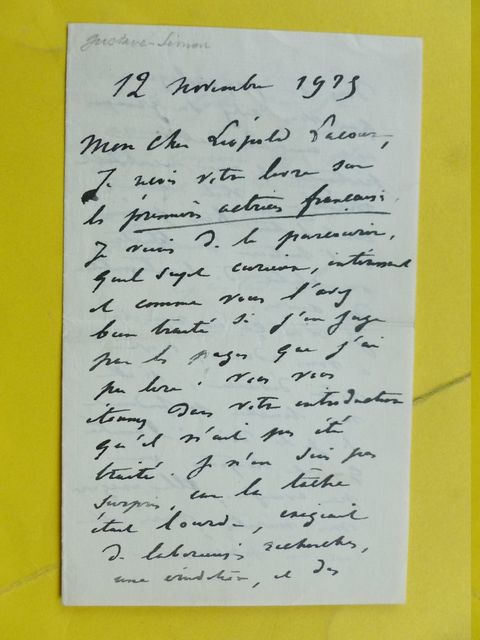 Gustave-Simon
12 novembre 19
Mon cher Léopold Lacour,
Je reçois votre livre sur
les premières actrices françaises.
Je viens de le parcourir,
quel sujet curieux, intéressant
et comme vous l'avez
bien traité si j'en juge
par les pages que j'ai
pu lire. Vous vous
étonnez dans votre introduction
qu'il n'ait pas été
traité. Je n'en suis pas
surpris, car la tâche
était lourde, exigeait
de laborieuses recherches,
une érudition, et des